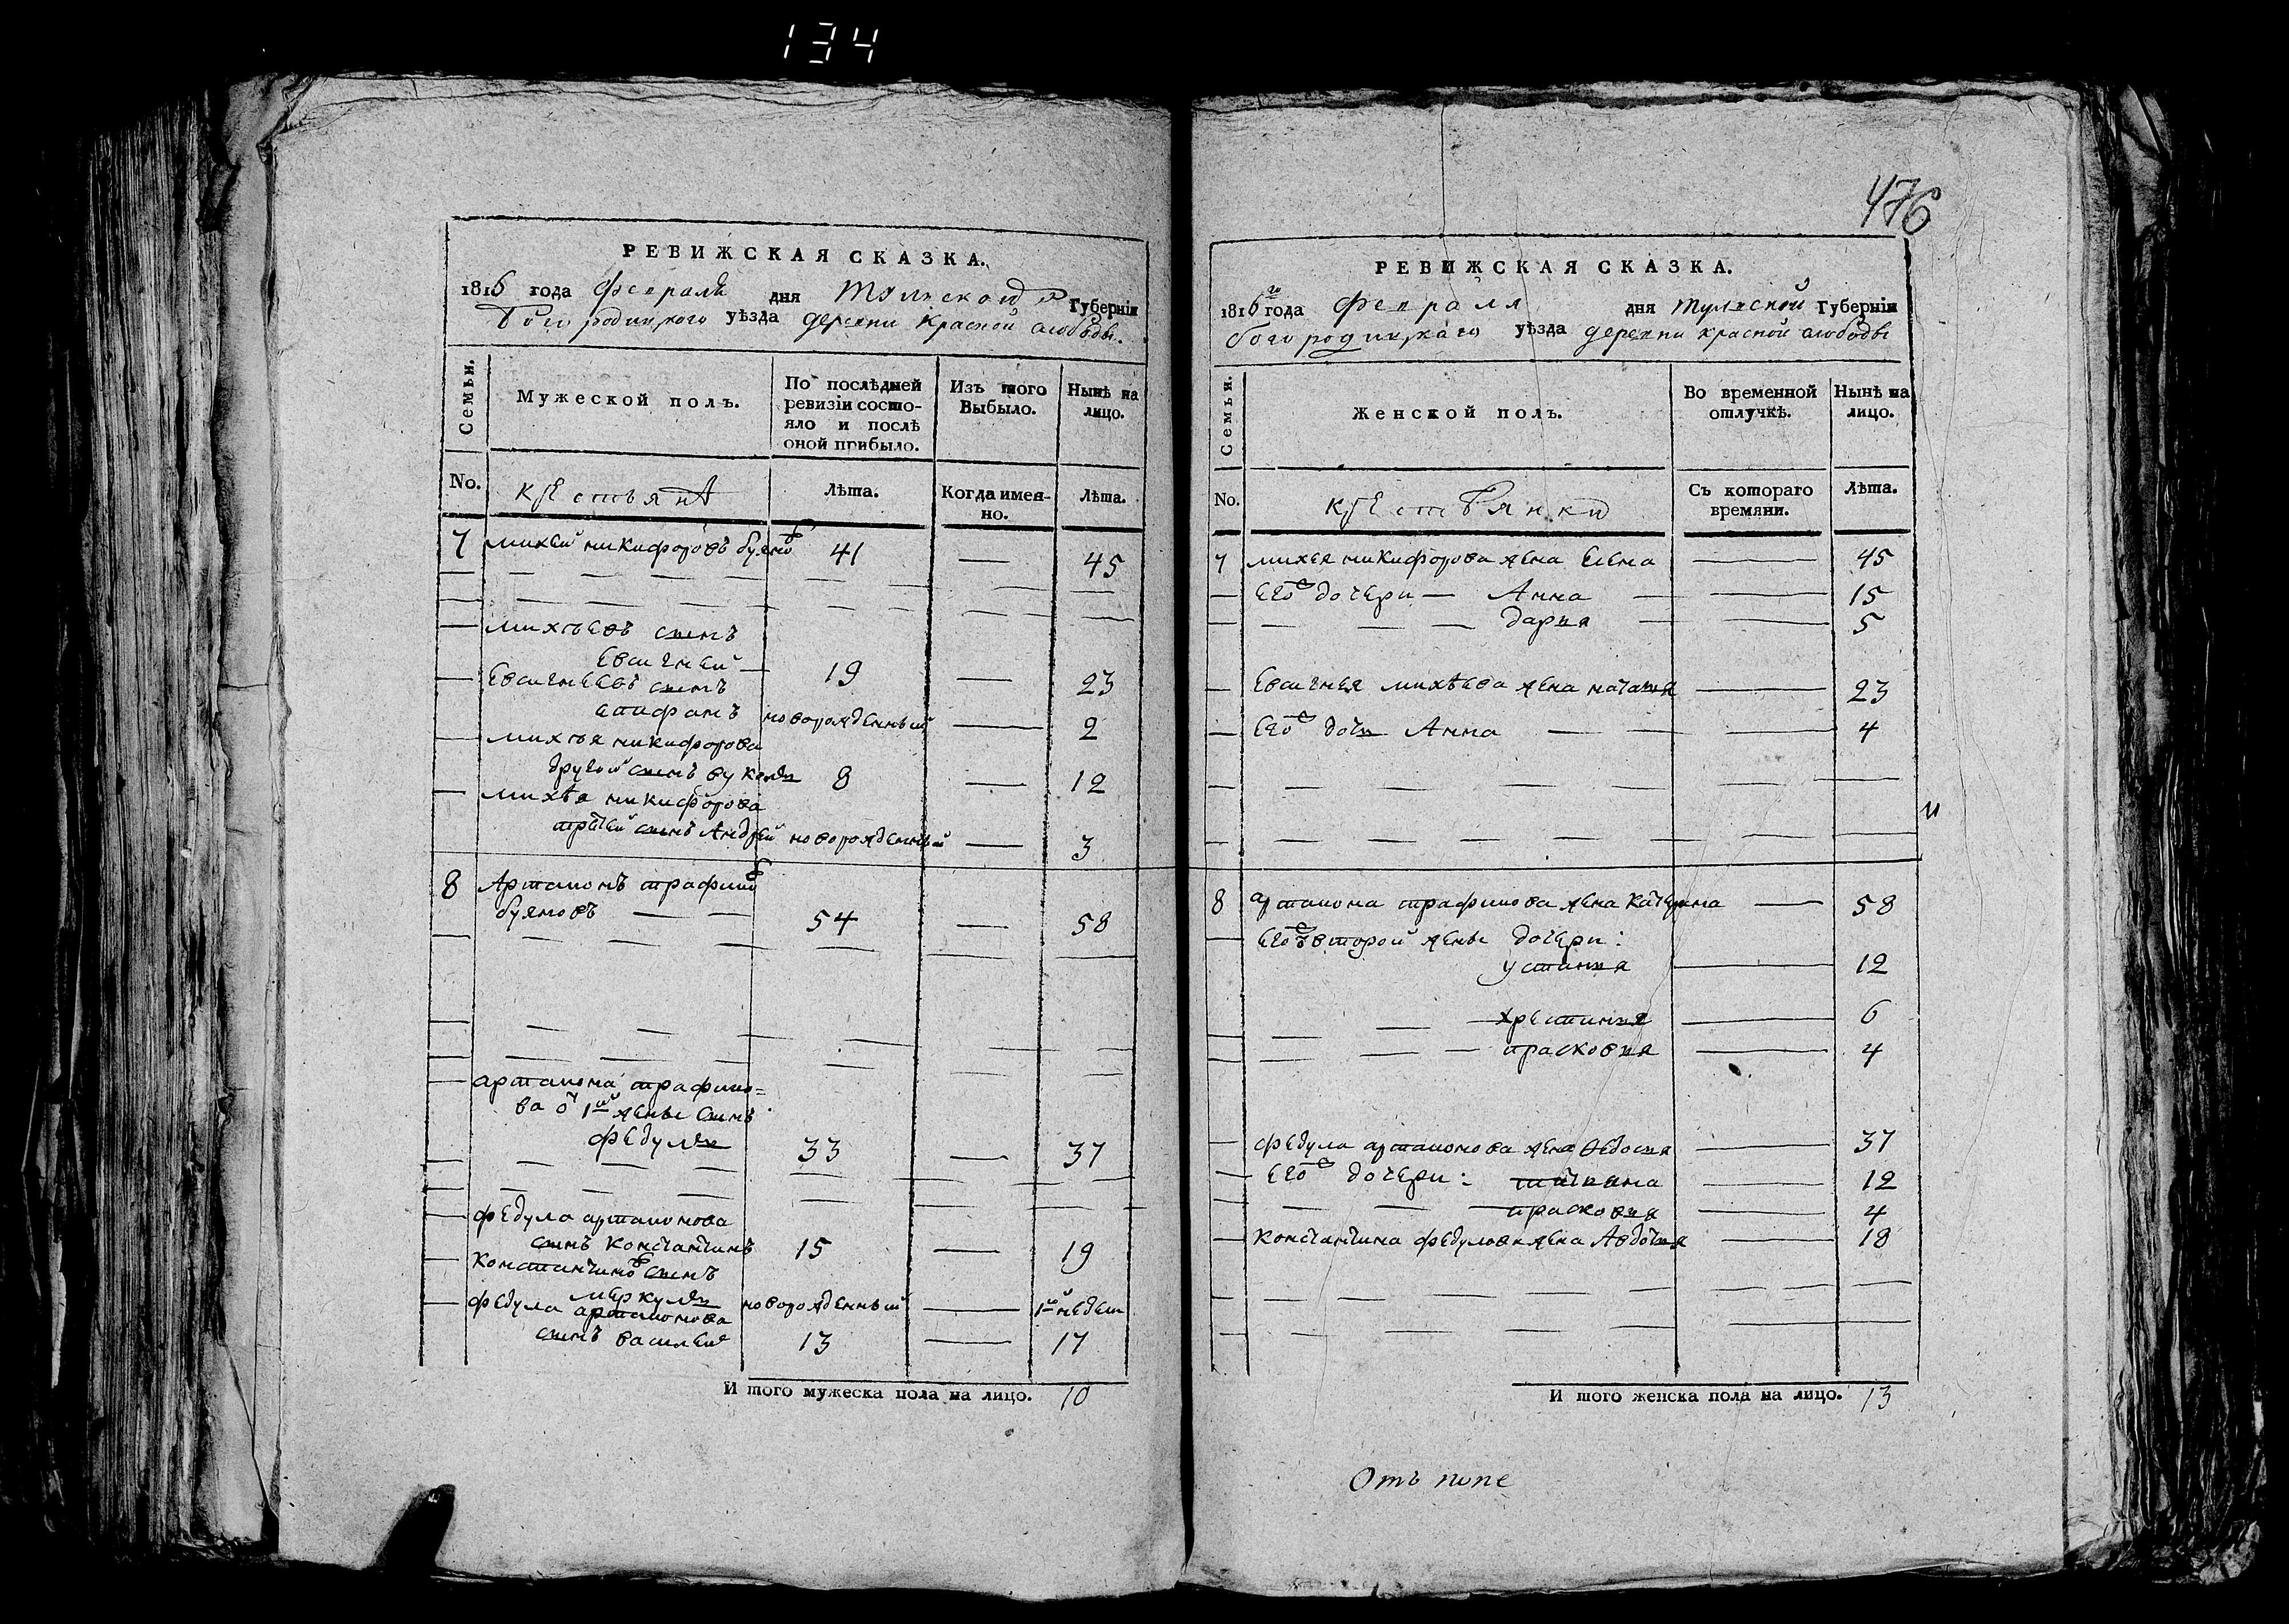 134
476
РЕВИЖСКАЯ СКАЗКА.
1816 года февраля дня Тульской Губерніи
Богородицкого уѣзда деревни Красной слободы.
Семьи.
Мужеской полъ.
По послѣдней ревизіи состояло и послѣ оной прибыло.
Изъ того Выбыло.
Нынѣ на лицо.
No.
крестьянѣ
Лѣта.
Когда имен-но.
Лѣта.
7 михей никифоровъ буяновъ 41 — 45
михѣевъ сынъ
евсигней — 19 — 23
евсигнеевъ сынъ
епифанъ новорожденный — 2
михѣя никифорова
другой сынъ вуколъ 8 — 12
михѣя никифорова
третей сынъ Андрей новорожденный — 3
8 Артамонъ трафимовъ
буяновъ — — 54 — 58
артамона трафимо=
ва от 1ой жены сынъ
федулъ 33 — 37
федула артамонова
сынъ константинъ 15 — 19
константиновъ сынъ
меркулъ новорожденный — 1ой недели
федула артамонова
сынъ василей 13 — 17
И того мужеска пола на лицо. 10
РЕВИЖСКАЯ СКАЗКА.
1816 года февраля дня тульской Губерніи
богородицкаго уѣзда деревни красной слободы
Семьи.
Женской полъ.
Во временной отлучкѣ.
Нынѣ на лицо.
No.
крестьянки
Съ котораго времяни.
Лѣта.
7 михея никифорова жена елена — 45
его дочери — Анна — — 15
— — — дарья — — 5
евсигнея михѣева жена наталья — 23
его дочь Анна — — — 4
8 артамона трафимова жена катерина — 58
его второй жены дочери:
устинья — 12
— — хрестинья — 6
— — — прасковья — 4
федула артамонова жена федосья — 37
его дочери: татьяна — 12
— — — прасковья — 4
константина федулова жена Авдотья — 18
И того женска пола на лицо. 13